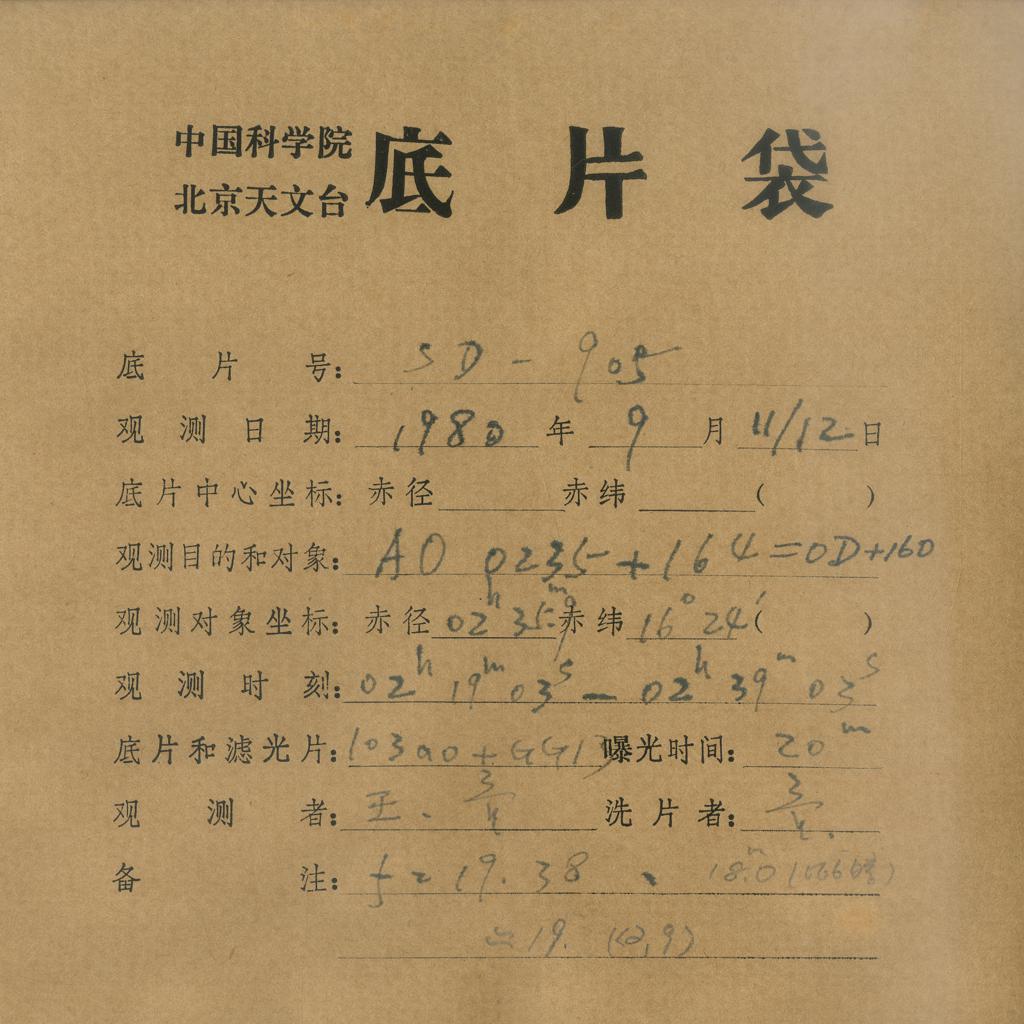 中国科学院
北京天文台
底片袋
底片号: SD-905
观测日期: 1980年9月11/12日
底片中心坐标: 赤径 赤纬 ( )
观测目的和对象: AO 0235+164=OD+160
观测对象坐标: 赤径 02ʰ35ᵐ 赤纬 16°24′( )
观测时刻: 02ʰ19ᵐ03ˢ—02ʰ39ᵐ03ˢ
底片和滤光片: 103aO+GG13 曝光时间: 20ᵐ
观测者: 王. 洗片者:
备注: f=19.38、 18ᵐ.0
≈19.